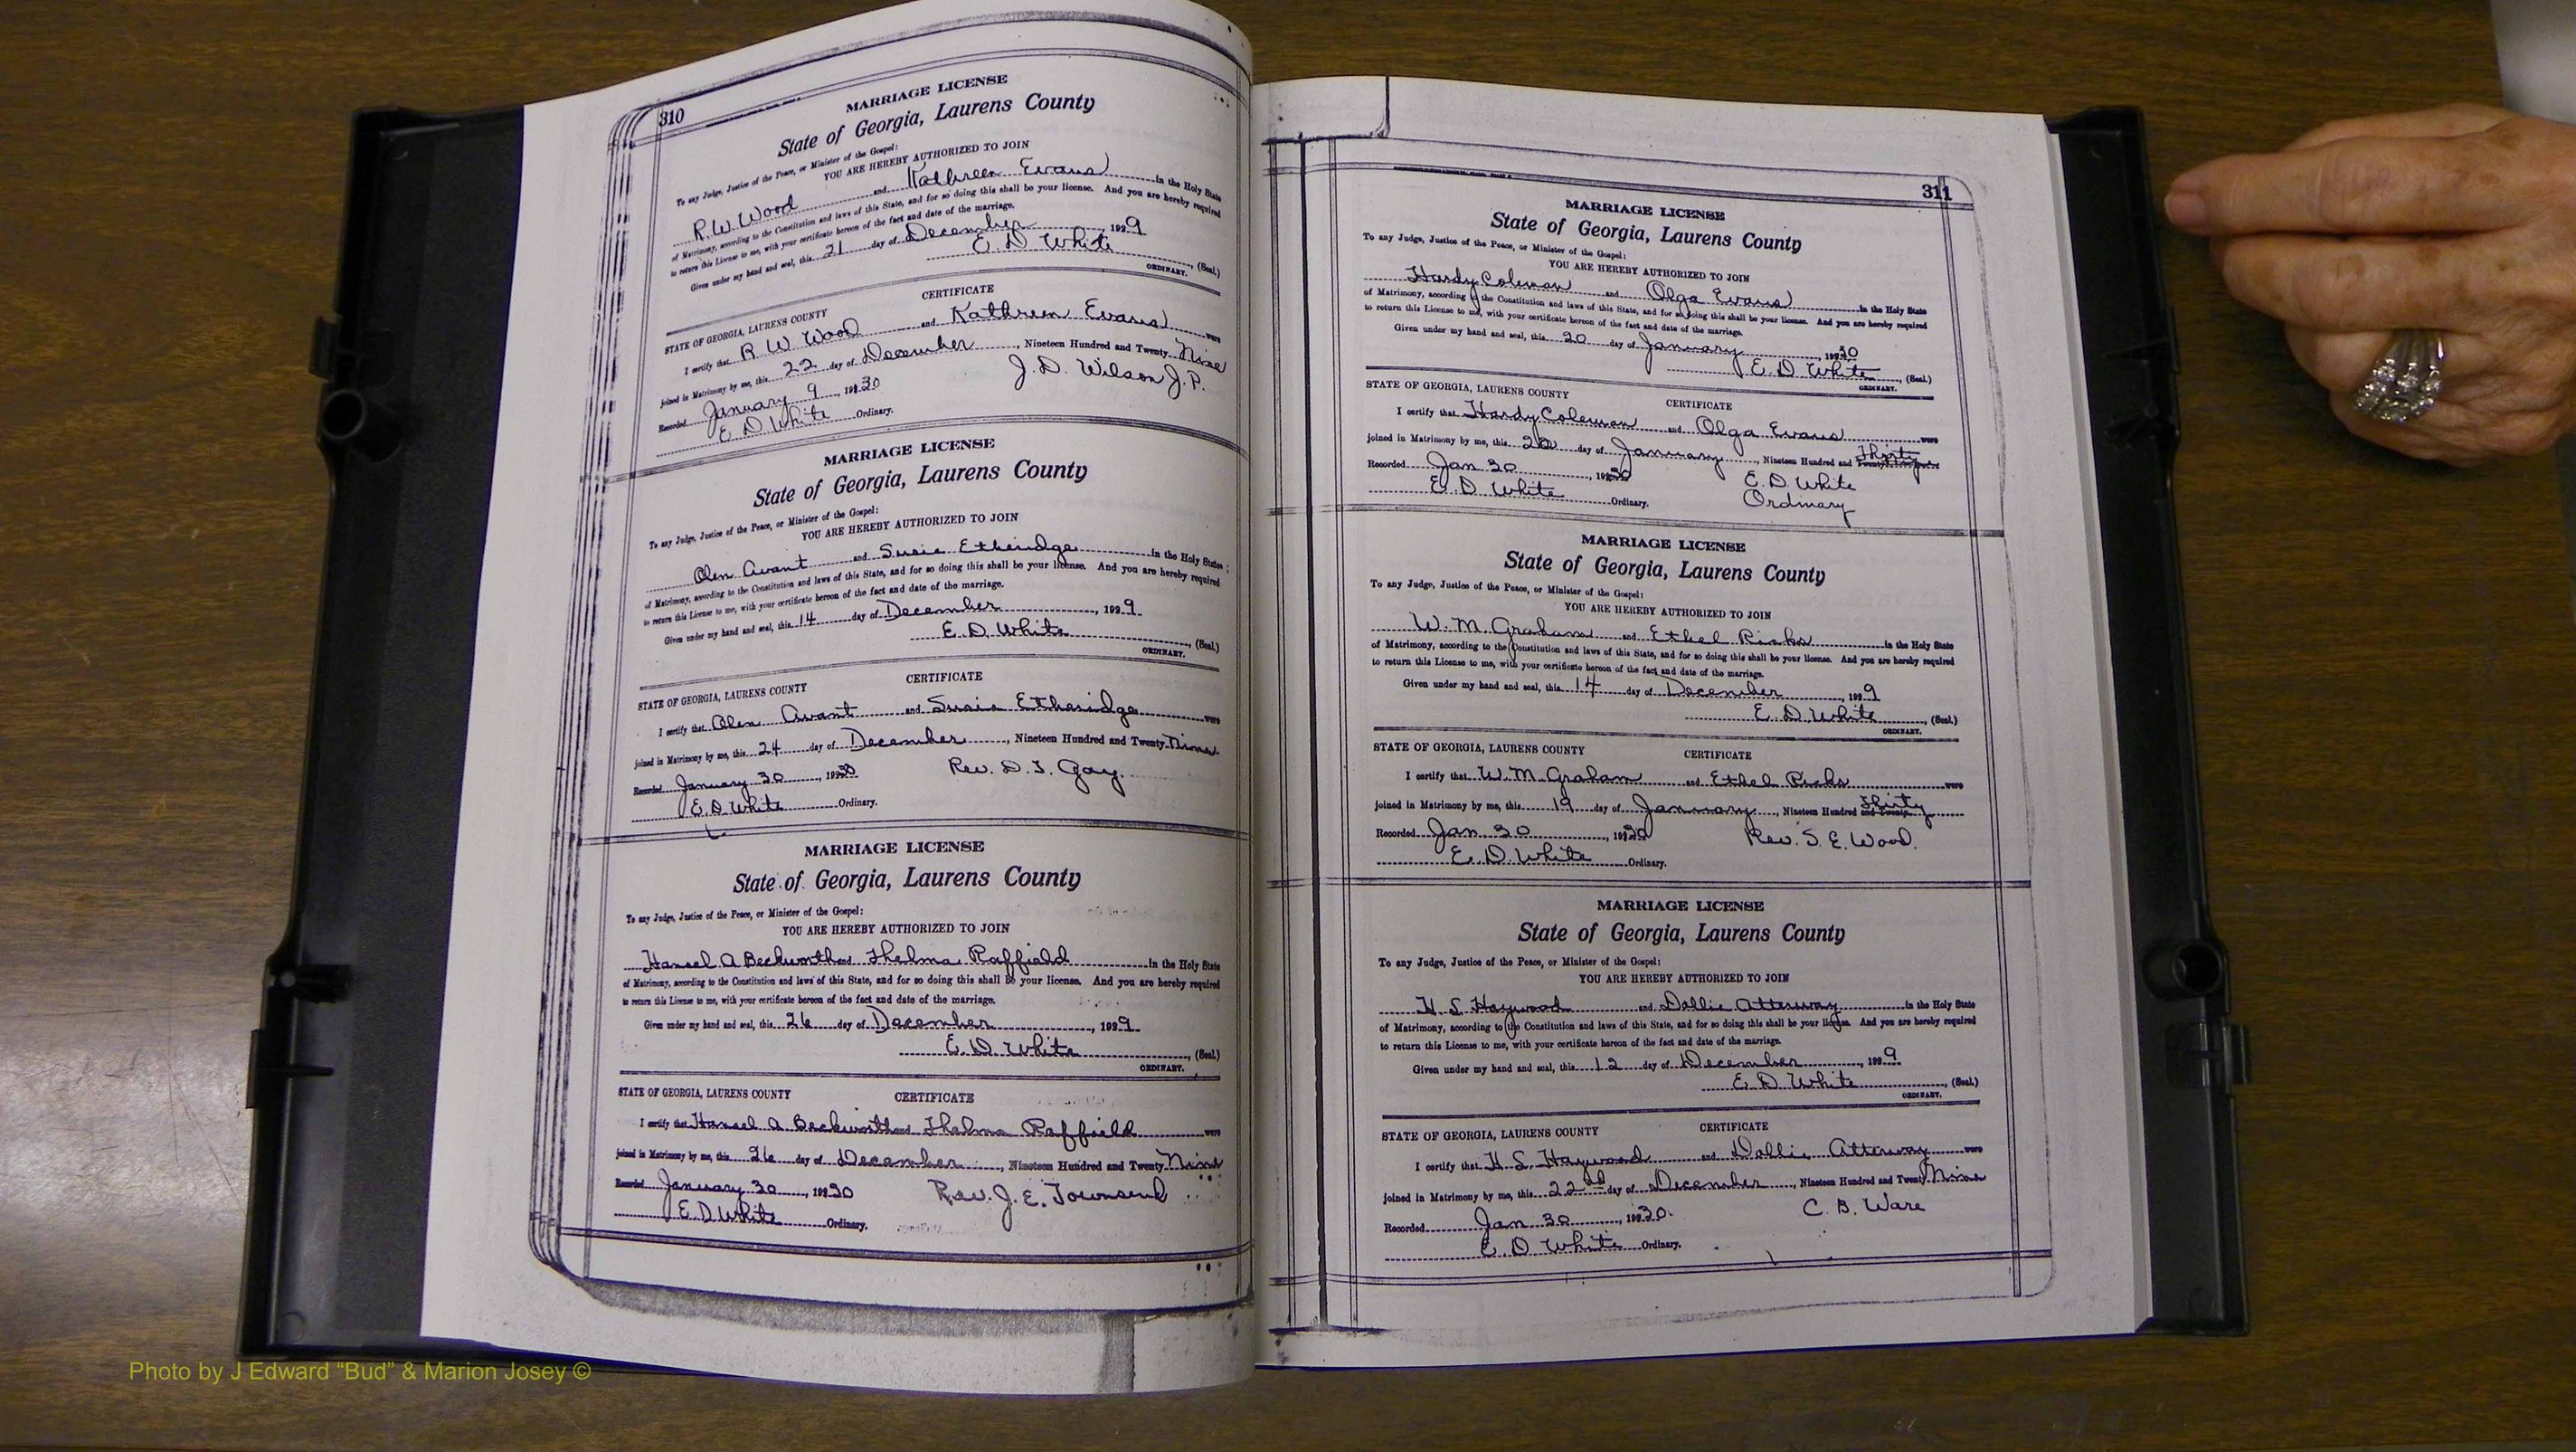 310
MARRIAGE LICENSE
State of Georgia, Laurens County
To any Judge, Justice of the Peace, or Minister of the Gospel:
YOU ARE HEREBY AUTHORIZED TO JOIN
R. W. Wood and Kathreen Evans in the Holy State
of Matrimony, according to the Constitution and laws of this State, and for so doing this shall be your license. And you are hereby required
to return this License to me, with your certificate hereon of the fact and date of the marriage.
Given under my hand and seal, this 21 day of December, 1929
E. D. White, (Seal.)
ORDINARY.
CERTIFICATE
STATE OF GEORGIA, LAURENS COUNTY
I certify that R W Wood and Kathreen Evans were
joined in Matrimony by me, this 22 day of December, Nineteen Hundred and Twenty Nine
Recorded January 9, 1930 J. D. Wilson J. P.
E D White Ordinary.
MARRIAGE LICENSE
State of Georgia, Laurens County
To any Judge, Justice of the Peace, or Minister of the Gospel:
YOU ARE HEREBY AUTHORIZED TO JOIN
Olen Avant and Susie Etheridge in the Holy State
of Matrimony, according to the Constitution and laws of this State, and for so doing this shall be your license. And you are hereby required
to return this License to me, with your certificate hereon of the fact and date of the marriage.
Given under my hand and seal, this 14 day of December, 1929
E. D. White, (Seal.)
ORDINARY.
CERTIFICATE
STATE OF GEORGIA, LAURENS COUNTY
I certify that Olen Avant and Susie Etheridge were
joined in Matrimony by me, this 24 day of December, Nineteen Hundred and Twenty Nine
Recorded January 30, 1930 Rev. D. T. Gay.
E. D. White Ordinary.
MARRIAGE LICENSE
State of Georgia, Laurens County
To any Judge, Justice of the Peace, or Minister of the Gospel:
YOU ARE HEREBY AUTHORIZED TO JOIN
Hansel A Beckworth and Thelma Raffield in the Holy State
of Matrimony, according to the Constitution and laws of this State, and for so doing this shall be your license. And you are hereby required
to return this License to me, with your certificate hereon of the fact and date of the marriage.
Given under my hand and seal, this 26 day of December, 1929
E. D. White, (Seal.)
ORDINARY.
STATE OF GEORGIA, LAURENS COUNTY CERTIFICATE
I certify that Hansel A Beckworth and Thelma Raffield were
joined in Matrimony by me, this 26 day of December, Nineteen Hundred and Twenty Nine
Recorded January 30, 1930 Rev. J. E. Townsend
E D White Ordinary.
311
MARRIAGE LICENSE
State of Georgia, Laurens County
To any Judge, Justice of the Peace, or Minister of the Gospel:
YOU ARE HEREBY AUTHORIZED TO JOIN
Hardy Coleman and Olga Evans in the Holy State
of Matrimony, according to the Constitution and laws of this State, and for so doing this shall be your license. And you are hereby required
to return this License to me, with your certificate hereon of the fact and date of the marriage.
Given under my hand and seal, this 20 day of January, 1930
E. D White, (Seal.)
ORDINARY.
STATE OF GEORGIA, LAURENS COUNTY CERTIFICATE
I certify that Hardy Coleman and Olga Evans were
joined in Matrimony by me, this 20 day of January, Nineteen Hundred and Thirty
Recorded Jan 30, 1930 E. D White
E. D. White Ordinary. Ordinary
MARRIAGE LICENSE
State of Georgia, Laurens County
To any Judge, Justice of the Peace, or Minister of the Gospel:
YOU ARE HEREBY AUTHORIZED TO JOIN
W. M. Graham and Ethel Ricks in the Holy State
of Matrimony, according to the Constitution and laws of this State, and for so doing this shall be your license. And you are hereby required
to return this License to me, with your certificate hereon of the fact and date of the marriage.
Given under my hand and seal, this 14 day of December, 1929
E. D. White, (Seal.)
ORDINARY.
STATE OF GEORGIA, LAURENS COUNTY CERTIFICATE
I certify that W. M. Graham and Ethel Ricks were
joined in Matrimony by me, this 19 day of January, Nineteen Hundred and Twenty Thirty
Recorded Jan 30, 1930 Rev. S. E. Wood.
E. D. White Ordinary.
MARRIAGE LICENSE
State of Georgia, Laurens County
To any Judge, Justice of the Peace, or Minister of the Gospel:
YOU ARE HEREBY AUTHORIZED TO JOIN
H. S. Haywood and Dollie Atterway in the Holy State
of Matrimony, according to the Constitution and laws of this State, and for so doing this shall be your license. And you are hereby required
to return this License to me, with your certificate hereon of the fact and date of the marriage.
Given under my hand and seal, this 12 day of December, 1929
E. D. White, (Seal.)
ORDINARY.
STATE OF GEORGIA, LAURENS COUNTY CERTIFICATE
I certify that H. S. Haywood and Dollie Atterway were
joined in Matrimony by me, this 22nd day of December, Nineteen Hundred and Twenty Nine
Recorded Jan 30, 1930. C. B. Ware
E. D White Ordinary.
Photo by J Edward “Bud” & Marion Josey ©